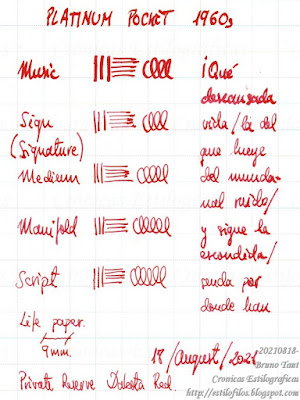 PLATINUM POCKET 1960s
Music
Sign
(Signature)
Medium
Manifold
Script
¡Qué
descansada
vida/la del
que huye
del munda-
nal ruido/
y sigue la
escondida/
senda por
donde han
Life paper.
9mm.
18/August/2021
Private Reserve Dakota Red.
20210818-
Bruno Taut
Cronicas Estilograficas
http://estilofilos.blogspot.com